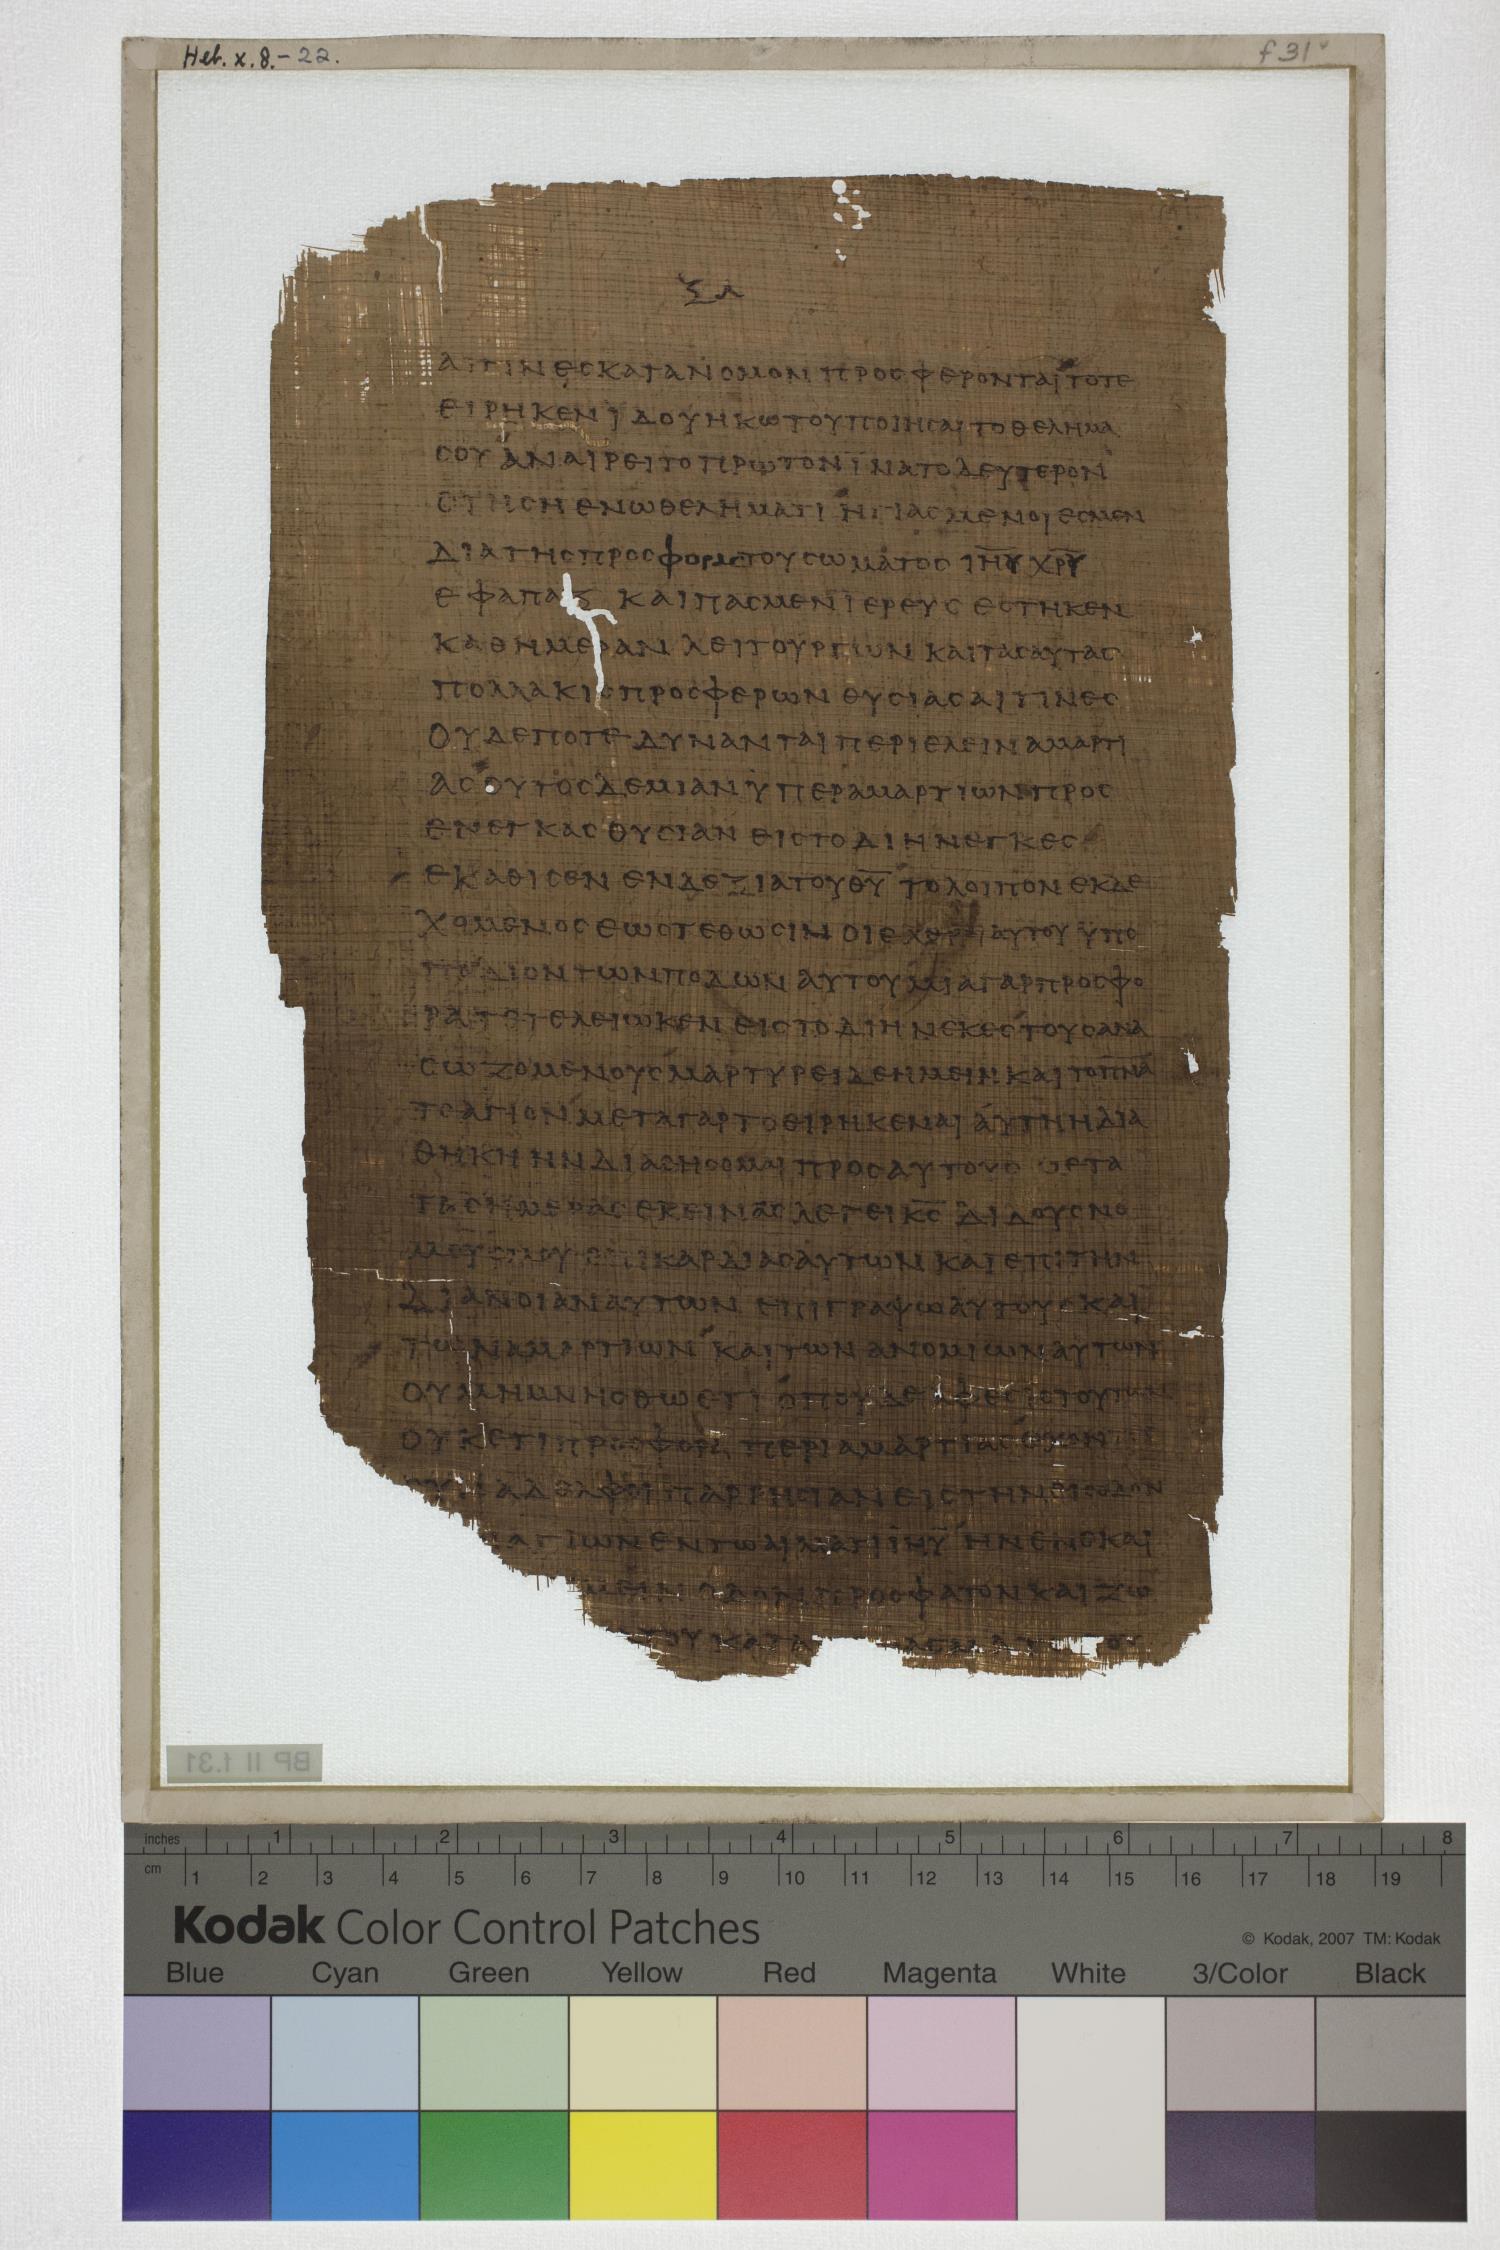 Heb. x. 8.-22.
f 31 v
ξλ
αιτινεσκατανομονπροσφερονταιτοτε
ειρηκενιδουηκωτουποιησαιτοθελημα
σουαναιρειτοπρωτονϊνατοδευτερον
στησηενωθεληματιηγιασμενοιεσμεν
διατηςπροσφοραςτουσωματοσ ιηυ χρυ
εφαπαξ καιπασμενϊερευς εστηκεν
καθημεραν λειτουργων και τασαυτας
πολλακισπροσφερων θυσιασαιτινες
ουδεποτεδυνανταιπεριελειναμαρτι
ασουτοσδεμιανϋπεραμαρτιωνπρος
ενεγκασ θυσιαν ειστοδιηνεγκες
εκαθισεν ενδεξιατουθυ τολοιπον εκδε
χομενοσεωστεθωσιν οιεχθροιαυτου ϋπο
ποδιοντωνποδων αυτουμιαγαρπροσφο
ρατετελειωκεν ειστοδιηνεκεστουσανα
σωζομενουσμαρτυρειδεημεινκαιτοπνα
τοαγιονμεταγαρτοειρηκεναιαυτηηδια
θηκη ηνδιαθησομαιπροσαυτους μετα
τασημερασεκεινας λεγεικς διδουσνο
μουσμουεπικαρδιασαυτων καιεπιτην
διανοιαναυτων επιγραψωαυτουςκαι
τωναμαρτιων καιτων ανομιωναυτων
ουμημνησθωετι οπουδεαφεσιςτουτων
ουκετιπροσφορα περιαμαρτιασεχον
αδελφοιπαρρησιανειςτηνεισοδον
αγιωνεντωαιματιιηυ ηνενεκαι
μειν οδονπροσφατονκαιζω
τουκατα
BP II f.31
inches 1 2 3 4 5 6 7 8
cm 1 2 3 4 5 6 7 8 9 10 11 12 13 14 15 16 17 18 19
Kodak Color Control Patches
© Kodak, 2007 TM: Kodak
Blue Cyan Green Yellow Red Magenta White 3/Color Black